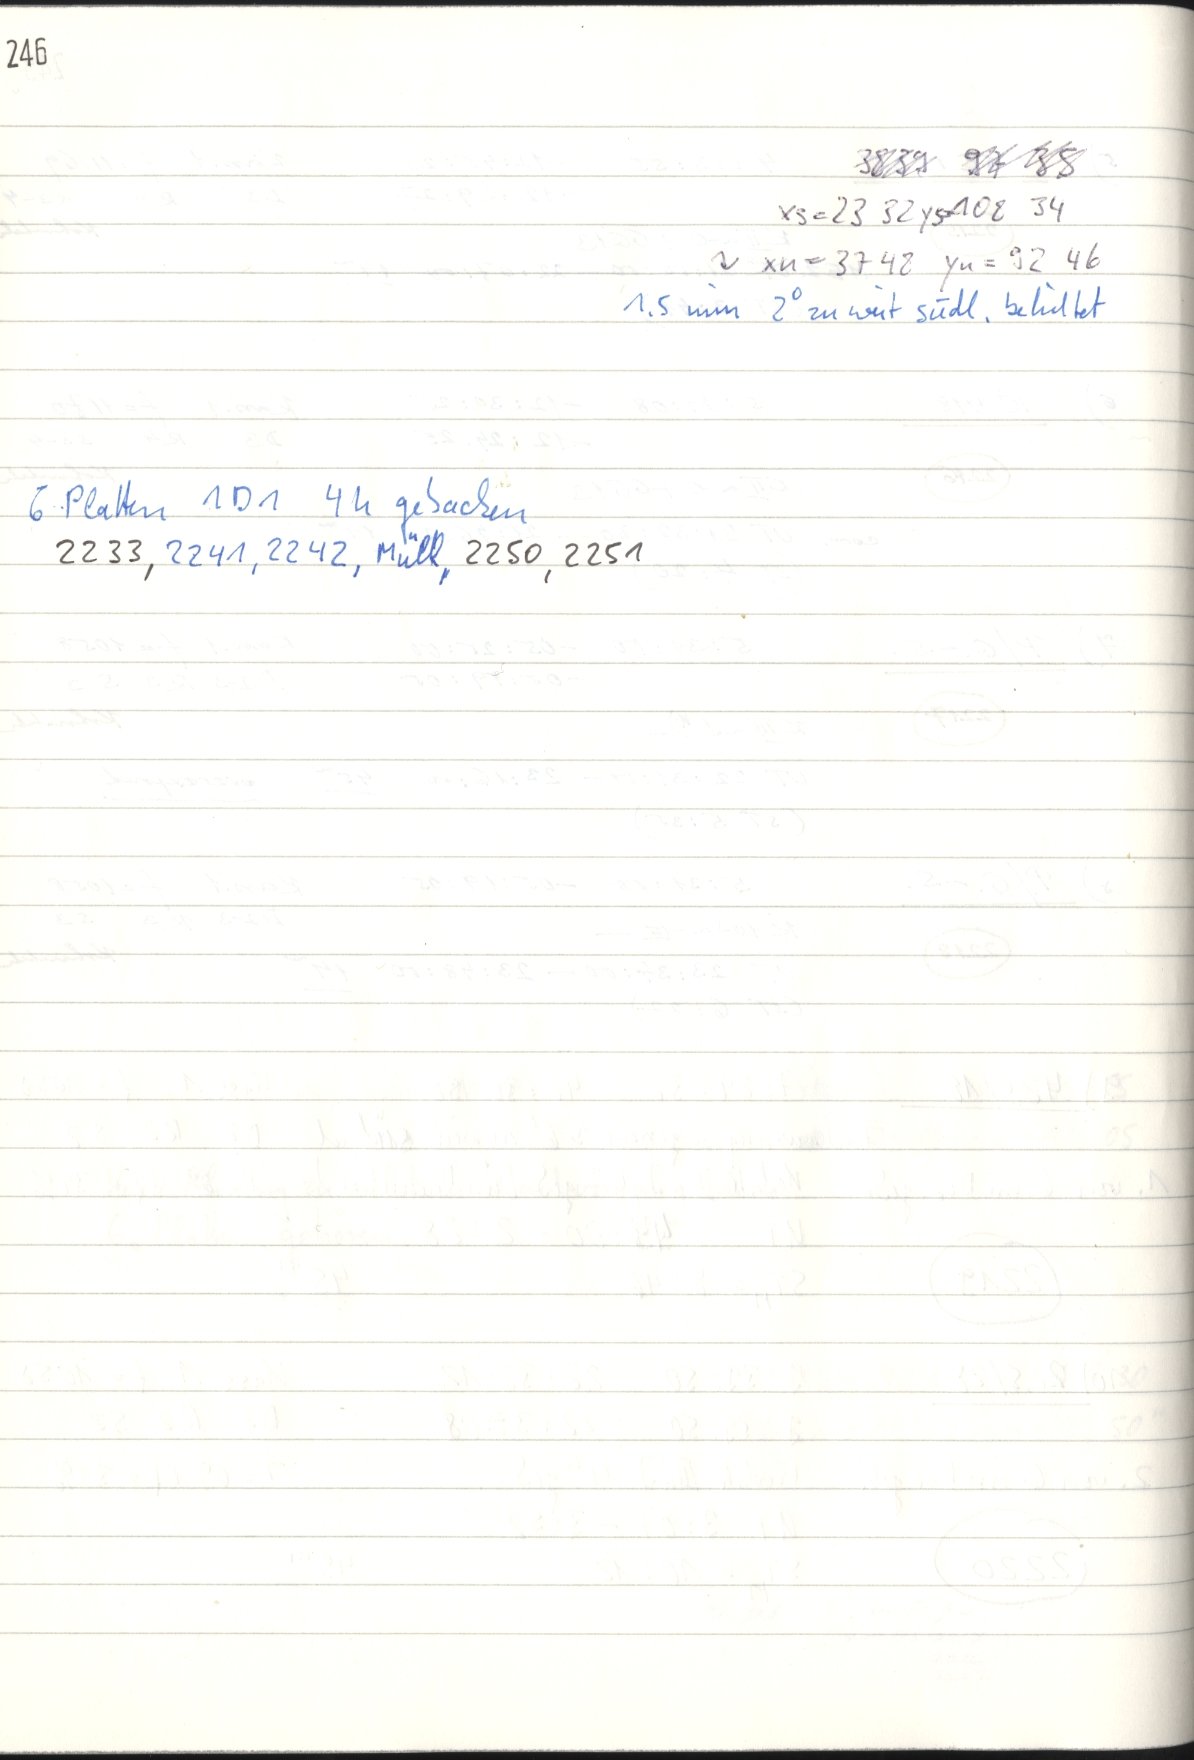 246
3839 92 35
xs=23 32 ys=108 34
~ xn = 37 42 yn = 92 46
1.5 min 2° zu weit südl. belichtet
6 Platten 1D1 4h gebacken
2233, 2241, 2242, "Müll", 2250, 2251